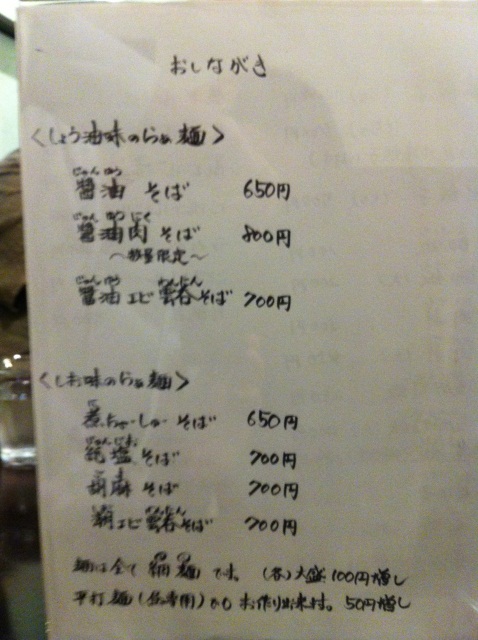 おしながき
<しょう油味のらぁ麺>
醤油 そば 650円
醤油肉 そば 800円
～数量限定～
醤油エビ雲呑そば 700円
<しお味のらぁ麺>
煮ちゃーしゅーそば 650円
純塩 そば 700円
胡麻 そば 700円
エビ雲呑そば 700円
麺は全て 細麺 です。 (各)大盛 100円増し
平打麺 もお作り出来ます。50円増し